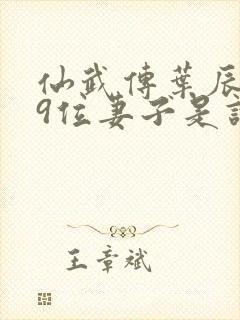 仙武傳葉辰
9位妻子是
王章斌